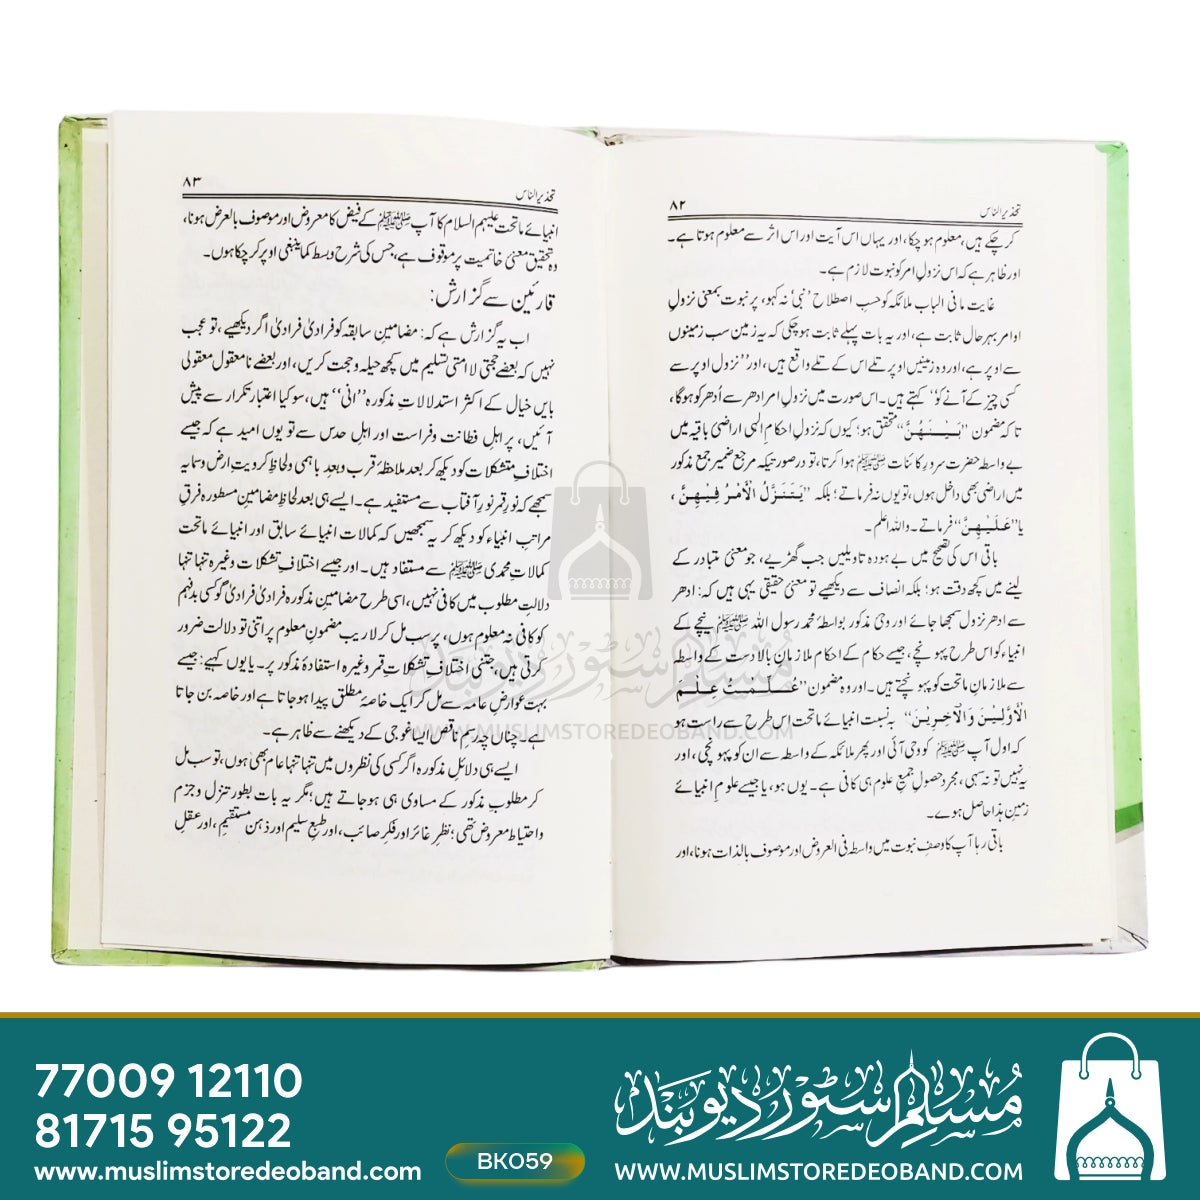 تحذیر الناس ۸۲
کرچکے ہیں، معلوم ہوچکا، اور یہاں اس آیت اور اس اثر سے معلوم ہوتا ہے۔
اور ظاہر ہے کہ اس نزولِ امر کو نبوت لازم ہے۔
غایت مافی الباب ملائکہ کو حسبِ اصطلاح ’’نبی‘‘ نہ کہو، پر نبوت بمعنی نزولِ
اوامر بہر حال ثابت ہے، اور یہ بات پہلے ثابت ہوچکی کہ یہ زمین سب زمینوں
سے اوپر ہے، اور وہ زمینیں اوپر تلے اس کے تلے واقع ہیں، اور ’’نزول اوپر سے
کسی چیز کے آنے کو‘‘ کہتے ہیں۔ اس صورت میں نزولِ امر ادھر سے اُدھر کو ہوگا،
تا کہ مضمون ’’بَیْنَھُنَّ‘‘ متحقق ہو؛ کیوں کہ نزولِ احکامِ الٰہی اراضیِ باقیہ میں
بے واسطہ حضرت سرورِ کائنات ﷺ ہوا کرتا، تو درصورتیکہ مرجع ضمیر جمع مذکور
میں اراضی بھی داخل ہوں، تو یوں نہ فرماتے؛ بلکہ ’’یَتَنَزَّلُ الْأَمْرُ فِیْھِنَّ،
یا ’’عَلَیْھِنَّ‘‘ فرماتے۔ واللہ اعلم۔
باقی اس کی تصحیح میں بے ہودہ تاویلیں جب گھڑیے، جو معنی متبادر کے
لینے میں کچھ دقت ہو؛ بلکہ انصاف سے دیکھیے تو معنیٰ حقیقی یہی ہیں کہ: ادھر
سے ادھر نزول سمجھا جائے اور وحیِ مذکور بواسطۂ محمد رسول اللہ ﷺ نیچے کے
انبیاء کو اس طرح پہونچے، جیسے حکام کے احکام ملازمانِ بالادست کے واسطہ
سے ملازمانِ ماتحت کو پہونچتے ہیں۔ اور وہ مضمون ’’عَلِمْتُ عِلْمَ
الْأَوَّلِیْنَ وَالْآخِرِیْنَ‘‘ بہ نسبت انبیائے ماتحت اس طرح سے راست ہو
کہ اول آپ ﷺ کو وحی آئی اور پھر ملائکہ کے واسطہ سے ان کو پہونچی، اور
یہ نہیں تو نہ سہی، مجرد حصولِ جمیع علوم ہی کافی ہے۔ یوں ہو، یا جیسے علومِ انبیائے
زمینِ ہذا حاصل ہوے۔
باقی رہا آپ کا وصفِ نبوت میں واسطہ فی العروض اور موصوف بالذات ہونا، اور
تحذیر الناس ۸۳
انبیائے ماتحت علیہم السلام کا آپ ﷺ کے فیض کا معروض اور موصوف بالعرض ہونا،
وہ تحقیق معنیٰ خاتمیت پر موقوف ہے، جس کی شرح وبسط کما ینبغی اوپر کرچکا ہوں۔
قارئین سے گزارش:
اب یہ گزارش ہے کہ: مضامینِ سابقہ کو فرادیٰ فرادیٰ اگر دیکھیے، تو عجب
نہیں کہ بعضے حجتی لا امتی تسلیم میں کچھ حیلہ وحجت کریں، اور بعضے نامعقول معقولی
بایں خیال کے اکثر استدلالاتِ مذکورہ ’’انی‘‘ ہیں، سو کیا اعتبار تکرار سے پیش
آئیں، پر اہلِ فطانت وفراست اور اہلِ حدس سے تو یوں امید ہے کہ جیسے
اختلافِ متشکلات کو دیکھ کر بعد ملاحظۂ قرب وبعدِ باہمی ولحاظِ کرویتِ ارض وسما یہ
سمجھے کہ نورِ قمر نورِ آفتاب سے مستفید ہے۔ ایسے ہی بعد لحاظِ مضامینِ مسطورہ فرقِ
مراتبِ انبیاء کو دیکھ کر یہ سمجھیں کہ کمالات انبیائے سابق اور انبیائے ماتحت
کمالاتِ محمدی ﷺ سے مستفاد ہیں۔ اور جیسے اختلافِ تشکلات وغیرہ تنہا تنہا
دلالتِ مطلوب میں کافی نہیں، اسی طرح مضامینِ مذکورہ فرادیٰ فرادیٰ گو کسی بدفہم
کو کافی نہ معلوم ہوں، پر سب مل کر لاریب مضمونِ معلوم پر اتنی تو دلالت ضرور
کرتی ہیں، جتنی اختلافِ تشکلاتِ قمر وغیرہ استفادۂ مذکور پر۔ یا یوں کہیے: جیسے
بہت عوارضِ عامہ سے مل کر ایک خاصۂ مطلق پیدا ہوجاتا ہے اور خاصہ بن جاتا
ہے۔ چناں چہ رسمِ ناقص ایساغوجی کے دیکھنے سے ظاہر ہے۔
ایسے ہی دلائلِ مذکورہ اگر کسی کی نظروں میں تنہا تنہا عام بھی ہوں، تو سب مل
کر مطلوبِ مذکور کے مساوی ہی ہوجاتے ہیں؛ مگر یہ بات بطورِ تنزل وجزم
واحتیاط معروض تھی؛ نظرِ غائر اور فکرِ صائب، اور طبعِ سلیم اور ذہنِ مستقیم، اور عقلِ
مسلم سٹور دیوبند
WWW.MUSLIMSTOREDEOBAND.COM
77009 12110
81715 95122
www.muslimstoredeoband.com
BK059
مسلم سٹور دیوبند
WWW.MUSLIMSTOREDEOBAND.COM